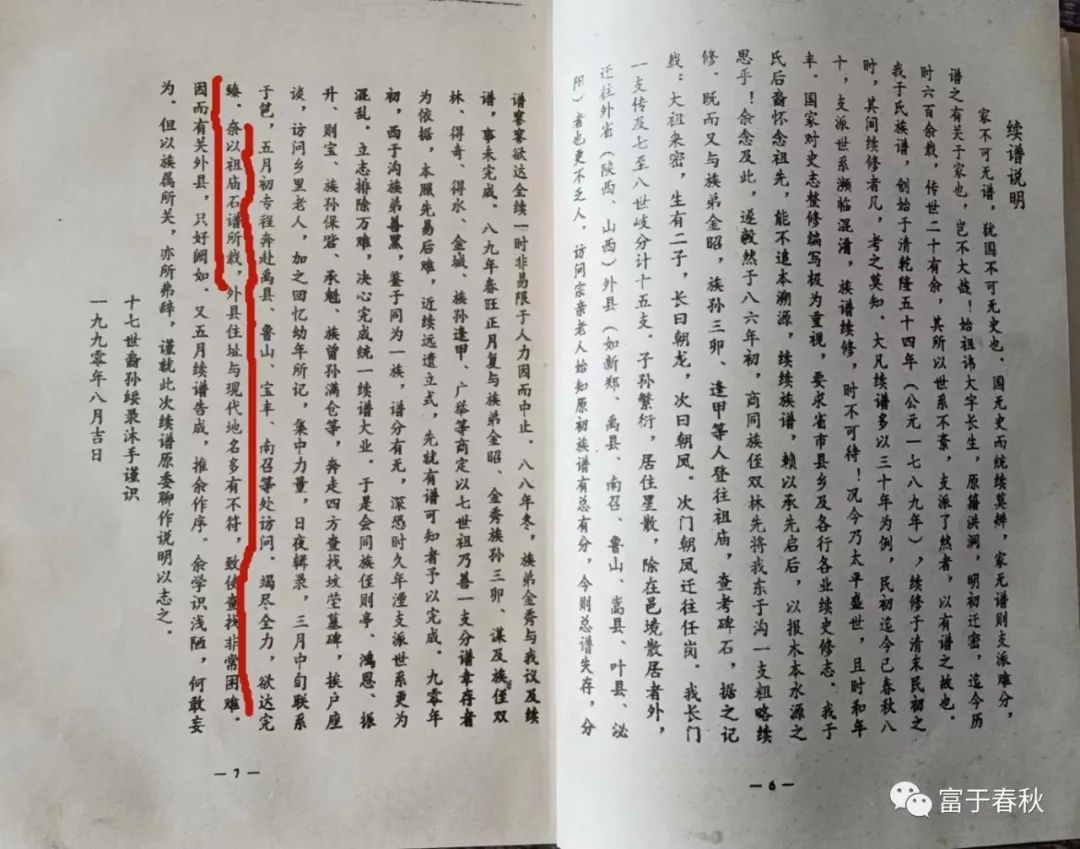 续谱说明
家不可无谱，犹国不可无史也。国无史而统续莫辨，家无谱则支派难分，
谱之有关于家也，岂不大哉！始祖讳大字长生，原籍洪洞，明初迁密，迄今历
时六百余载，传世二十有余，其所以世系不紊，支派了然者，以有谱之故也。
我于氏族谱，创始于清乾隆五十四年（公元一七八九年），续修于清末民初之
时，其间续修者几，考之莫知。大凡续谱多以三十年为例，民初迄今已春秋八
十，支派世系濒临混淆，族谱续修，时不可待！况今乃太平盛世，且时和年
丰。国家对史志整修编写极为重视，要求省市县乡及各行各业续史修志。我于
氏后裔怀念祖先，能不追本溯源，续续族谱，赖以承先启后，以报木本水源之
思乎！余念及此，遂毅然于八六年初，商同族侄双林先将我东于沟一支粗略续
修。既而又与族弟金昭，族孙三卯、逢甲等人登往祖庙，查考碑石，据之记
线：大祖来密，生有二子，长曰朝龙，次曰朝凤。次门朝凤迁往任岗。我长门
一支传及七至八世歧分计十五支。子孙繁衍，居住星散，除在邑境散居者外，
迁往外省（陕西、山西）外县（如新郑、禹县、南召、鲁山、嵩县、叶县、泌
阳）者也更不乏人，访问宗亲老人始知原初族谱有总有分，今则总谱失存，分
—6—
谱寥寥欲达全续一时非易限于人力因而中止。八八年冬，族弟金秀与我议及续
谱，事未完成。八九年春旺正月复与族弟金昭、金秀族孙三卯、谋及族侄双
林、得奇、得水、金城、族孙逢甲、广举等商定以七世祖乃善一支分谱幸存者
为依据，本照先易后难，近续远遗立式，先就有谱可知者予以完成。九零年
初，西于沟族弟善黑，鉴于同为一族，谱分有无，深恐时久年湮支派世系更为
混乱。立志排除万难，决心完成统一续谱大业。于是会同族侄则亭、鸿恩、振
升、则宝、族孙保岩、承魁、族曾孙满仓等，奔走四方查找坟茔墓碑，挨户座
谈，访问乡里老人，加之回忆幼年所记，集中力量，日夜辑录，三月中旬联系
于苞，五月初专程奔赴禹县、鲁山、宝丰、南召等处访问。竭尽全力，欲达完
臻。奈以祖庙石谱所载，外县住址与现代地名多有不符，致使查找非常困难。
因而有关外县，只好阙如。又五月续谱告成，推余作序。余学识浅陋，何敢妄
为。但以族属所关，亦所弗辞，谨就此次续谱原委聊作说明以志之。
十七世裔孙绥录沐手谨识
一九九零年八月吉日
—7—
富于春秋